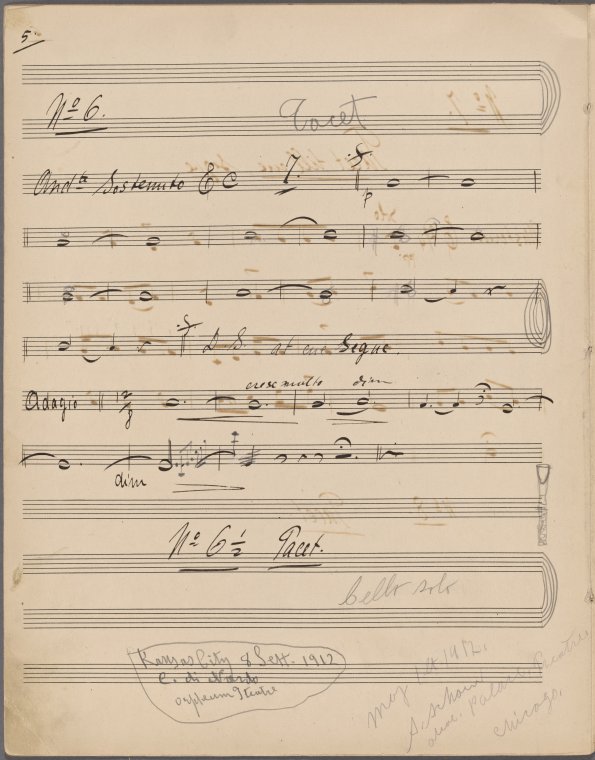 5.
No 6. Tacet
Andte Sostenuto 7.
p
D. S. at cue Segue.
cresc molto dim
Adagio 12/8
dim
No 6 1/2 Tacet.
Cello solo
Kansas City 8 Sett. 1912
C. di Nardo
Orpheum Teatre
May 14 1912.
Palace Theatre,
Chicago.